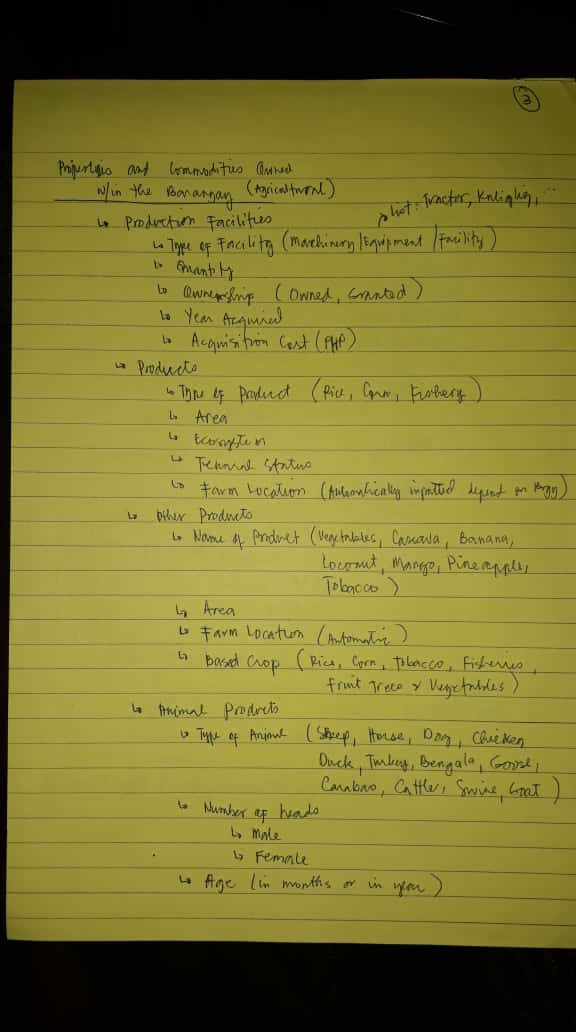 3
Properties and Commodities Owned
w/in the Barangay (Agricultural)
hot: Tractor, Kuliglig, ...
↳ Production Facilities
↳ Type of Facility (Machinery/Equipment/Facility)
↳ Quantity
↳ Ownership (Owned, Granted)
↳ Year Acquired
↳ Acquisition Cost (PHP)
↳ Products
↳ Type of Product (Rice, Corn, Fishery)
↳ Area
↳ Ecosystem
↳ Tenural Status
↳ Farm Location (Automatically inputted depend on brgy)
↳ Other Products
↳ Name of Product (Vegetables, Cassava, Banana,
Coconut, Mango, Pineapple,
Tobacco)
↳ Area
↳ Farm Location (Automatic)
↳ Based Crop (Rice, Corn, Tobacco, Fisheries,
Fruit Trees & Vegetables)
↳ Animal Products
↳ Type of Animal (Sheep, Horse, Dog, Chicken
Duck, Turkey, Bengala, Goose,
Carabao, Cattle, Swine, Goat)
↳ Number of heads
↳ Male
↳ Female
↳ Age (in months or in year)